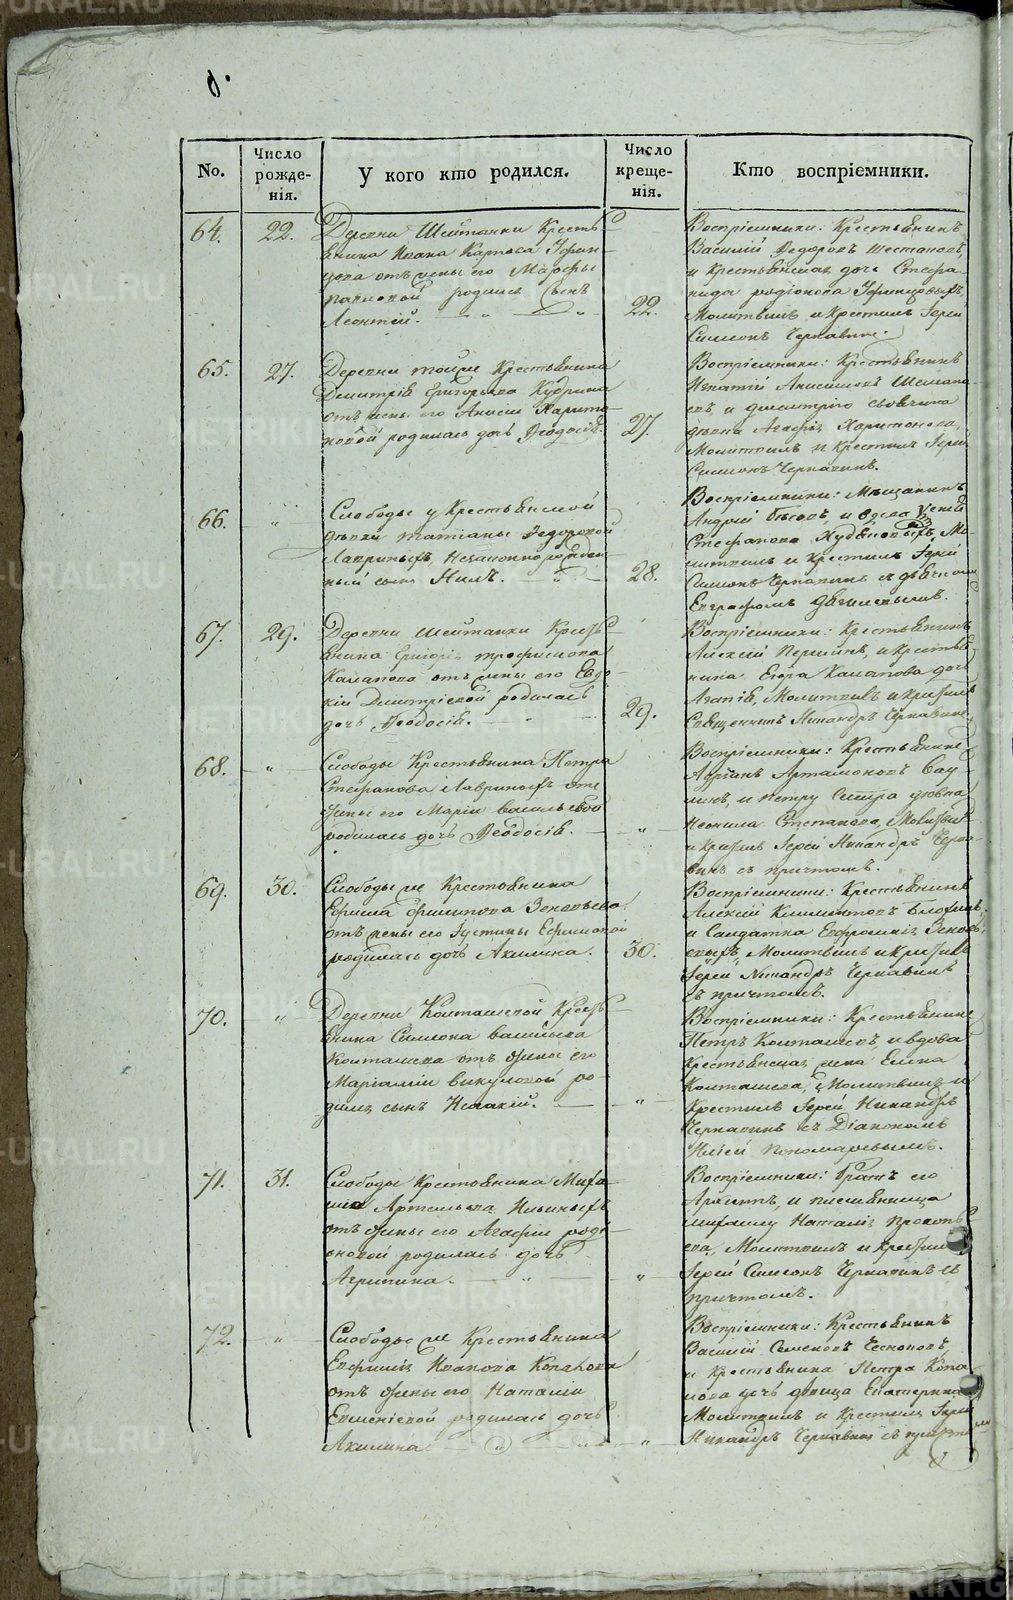 No.
Число рожде-нія.
У кого кто родился.
Число креще-нія.
Кто воспріемники.
64.
22.
Деревни Шейтанки Кресть
янина Ивана Карпова
цова отъ жены его Марфы
родился сынъ
Леонтій.
22.
Воспріемники: Крестьянинъ
Василій Федоровъ
и крестьянская дочь Стефа-
нида Родіонова
Молитвилъ и крестилъ Іерей
Симеонъ Чернавинъ.
65.
27.
Деревни тойже Крестьянина
Димитрія Григорьева Кудрина
отъ жены его Анисіи Харито-
новой родилась дочь Ѳеодосія.
27.
Воспріемники: Крестьянинъ
Игнатій Анисимовъ
и Димитрія
Агафія Харитонова,
Молитвилъ и крестилъ Іерей
Симеонъ Чернавинъ.
66.
"
Слободы у Крестьянской
дѣвки Татіаны Ѳедоровой
Лавриныхъ, Незаконнорожден-
ный сынъ Нилъ.
28.
Воспріемники: Мѣщанинъ
Андрей и вдова
Стефанова
и крестилъ Іерей
Симеонъ Чернавинъ съ дьячкомъ
Евграфомъ
67.
29.
Деревни Шейтанки Кресть
янина Григорія Трофимова
отъ жены его Евдо-
кіи Дмитріевой родилась
дочь Ѳеодосія.
29.
Воспріемники: Крестьянинъ
Алексій и крестья
нина Егора дочь
Агапія, Молитвилъ и крестилъ
Священникъ Никандръ Чернавинъ
68.
"
Слободы Крестьянина Петра
Стефанова Лавриныхъ отъ
жены его Маріи Васильевой
родилась дочь Ѳеодосія.
"
Воспріемники: Крестьянинъ
Артамоновъ
и Петру сестра дѣвка
Неонила Степанова, Молитвил
и крестилъ Іерей Никандръ Черна-
винъ съ причтомъ.
69.
30.
Слободы же Крестьянина
Ефима Филипова Зеновьева
отъ жены его Іустины Ефимовой
родилась дочь Акилина.
30.
Воспріемники: Крестьянинъ
Алексій Климентовъ
и Солдатка Евфросинія Зеновь-
евыхъ, Молитвилъ и крестилъ
Іерей Никандръ Чернавинъ
съ причтомъ.
70.
"
Деревни Колташевой Кресть
янина Симеона Васильева
Колташева отъ жены его
Маріаміи Викуловой ро-
дился сынъ Исаакій.
"
Воспріемники: Крестьянинъ
Петръ Колташевъ, и вдова
крестьянская жена Елена
Колташева, Молитвилъ и
крестилъ Іерей Никандръ
Чернавинъ съ Діакономъ
Пономаревымъ.
71.
31.
Слободы Крестьянина Миха-
ила Артемьева Ильиныхъ
отъ жены его Агафіи Роді-
оновой родилась дочь
Агрипина.
"
Воспріемники: Братъ его
и племянница
Михаилу Наталія Прокопь
ева, Молитвилъ и крестилъ
Іерей Симеонъ Чернавинъ съ
причтомъ.
72.
"
Слободы же Крестьянина
Евфимія Иванова Копалова
отъ жены его Наталіи
Евменіевой родилась дочь
Акилина
"
Воспріемники: Крестьянинъ
Василій Семеновъ Чесноковъ,
и крестьянина Петра Копа
лова дочь дѣвица Екатерина
Молитвилъ и крестилъ Іерей
Никандръ Чернавинъ съ причтомъ
METRIKI.GASO-URAL.RU